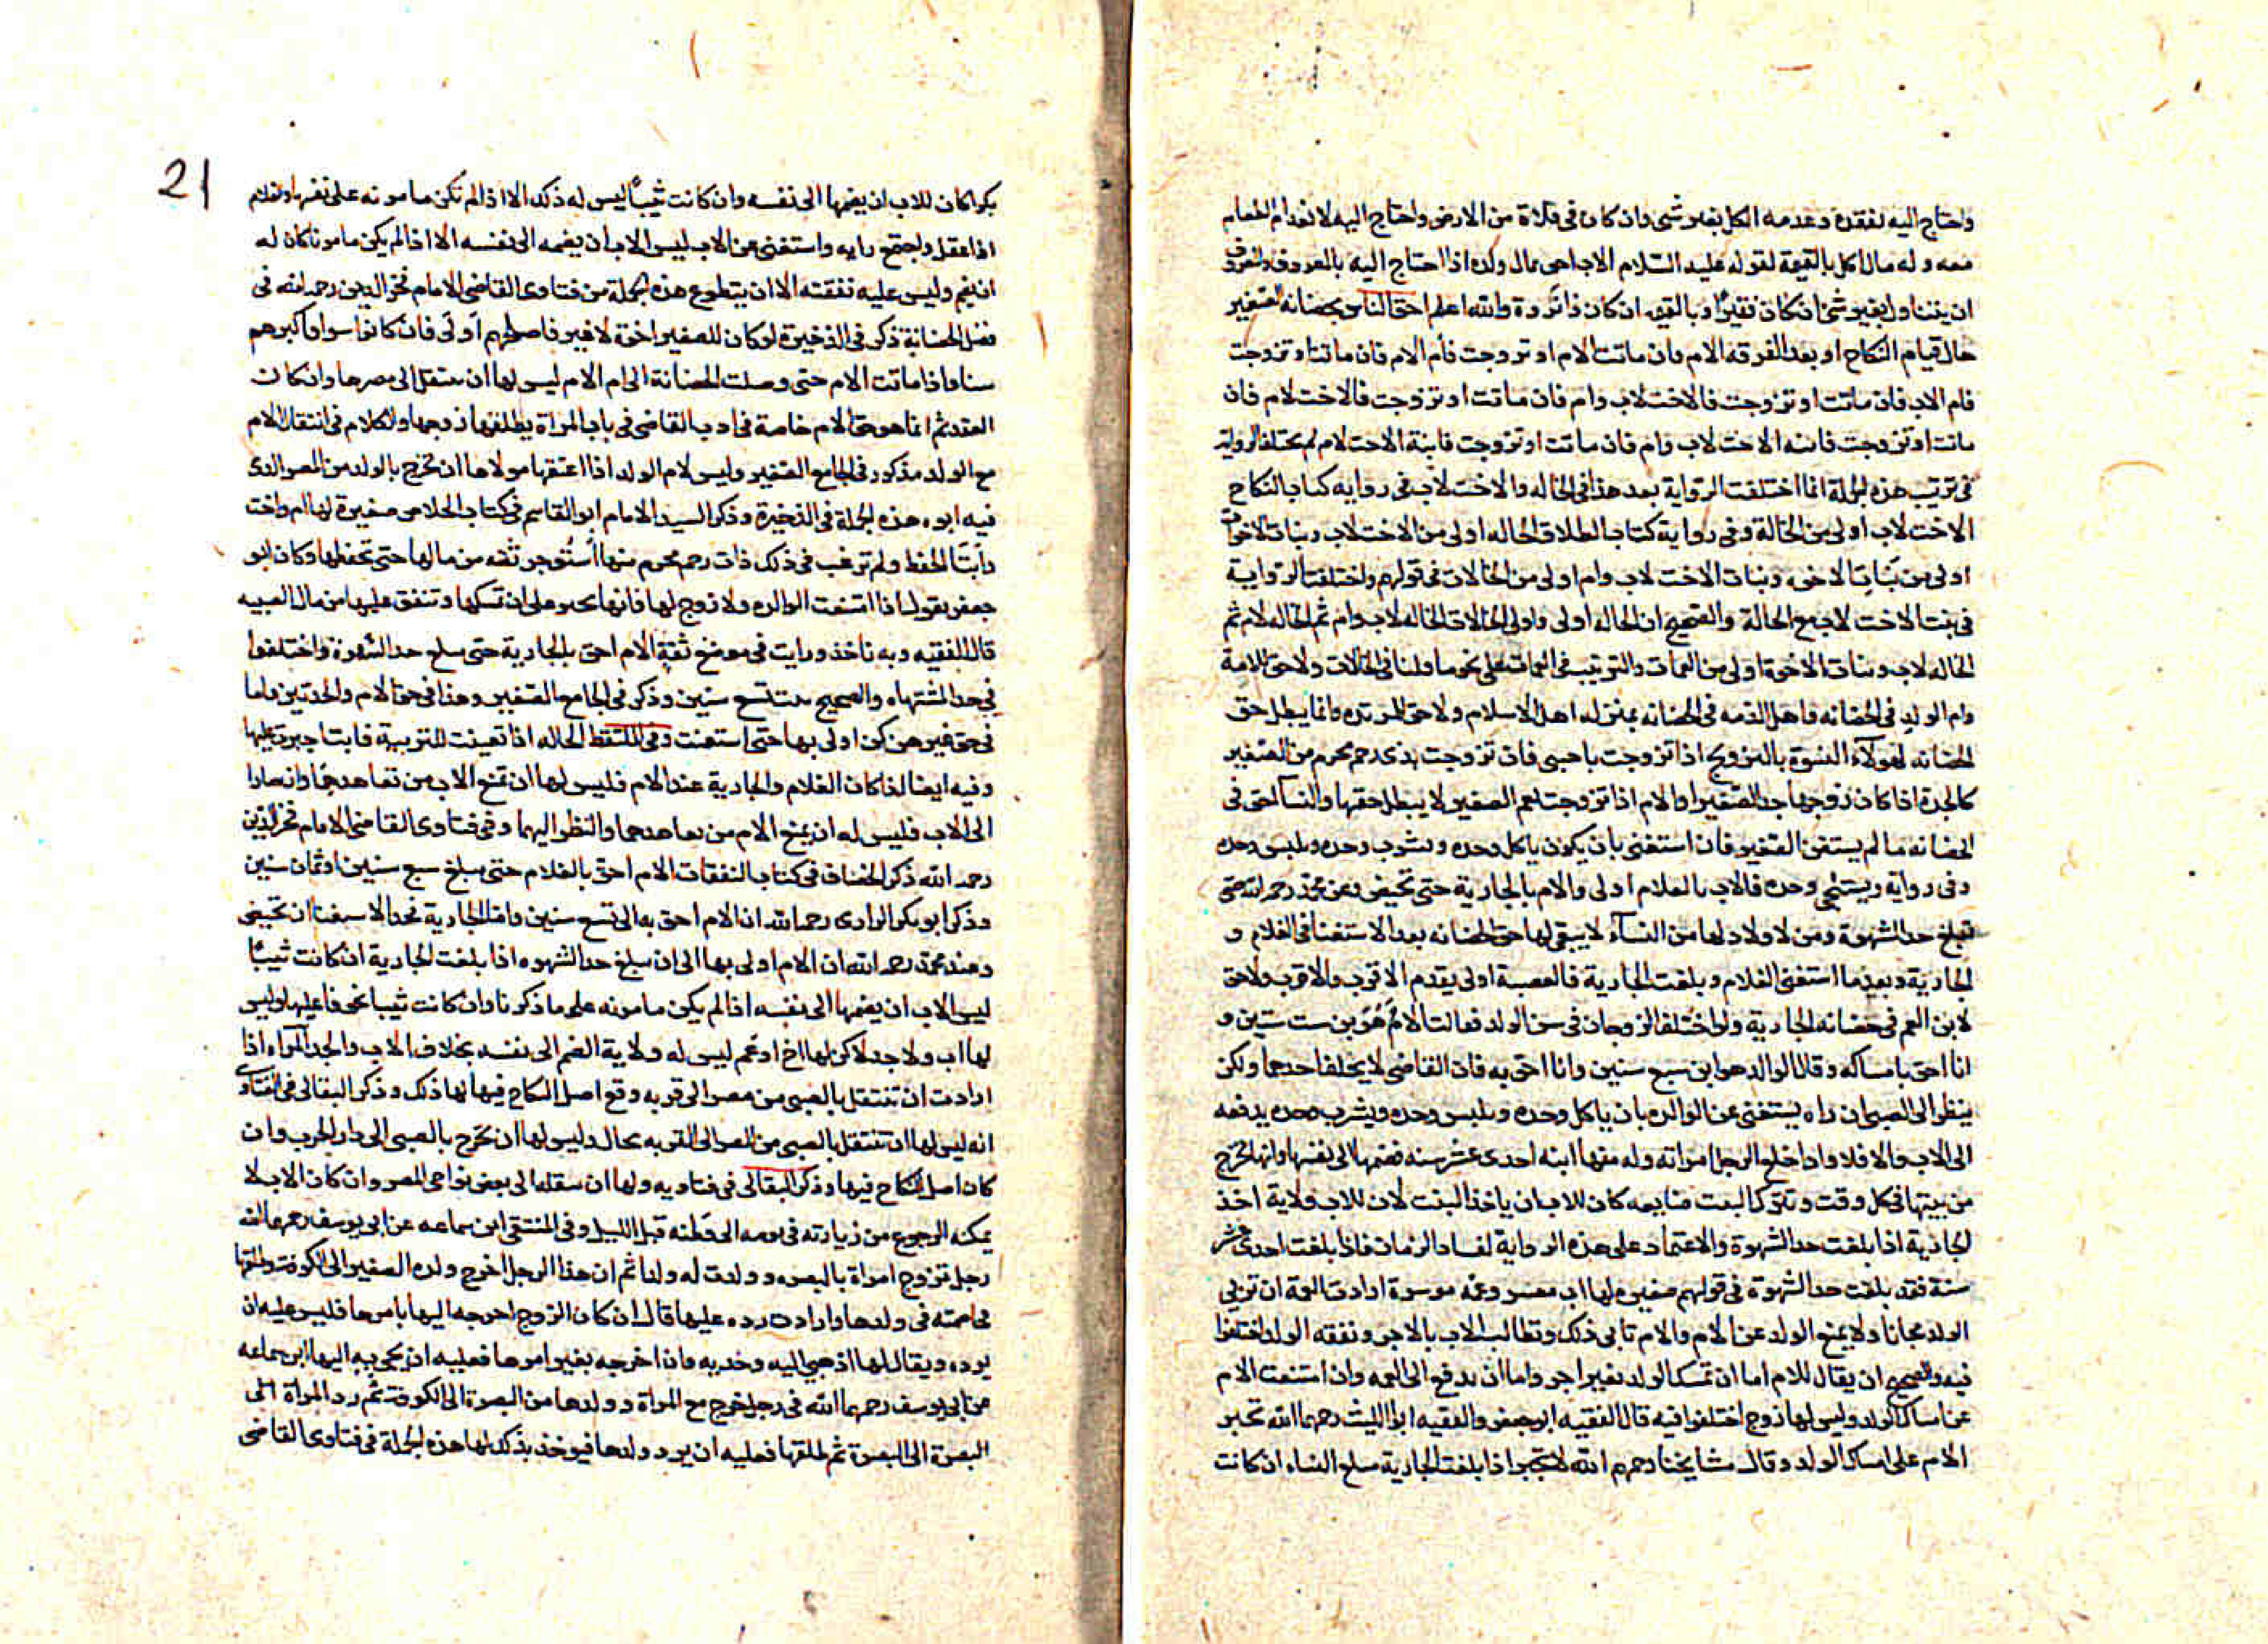 واحتاج اليه لفقره وعدمه اكل بغير شئ وان كان في فلاة من الارض واحتاج اليه لانعدام الطعام
معه وله مال اكل بالقيمة لقوله عليه السلام الاب احق بمال ولده اذا احتاج اليه بالمعروف والمعروف
ان يتناول بغير شئ ان كان فقيرا وبالقيمة ان كان ذا ثروة والله اعلم احق الناس بحضانة الصغير
حال قيام النكاح او بعد الفرقه الام وان ماتت الام او تزوجت فام الام فان ماتت او تزوجت
فام الاب فان ماتت او تزوجت فالاخت لاب وام فان ماتت او تزوجت فالاخت لام فان
ماتت او تزوجت فابنه الاخت لاب وام فان ماتت او تزوجت فابنة الاخت لام لم يختلف الرواية
في ترتيب هذه الجملة انما اختلفت الرواية بعد هذا في الخاله والاخت لاب ففي رواية كتاب النكاح
الاخت لاب اولى من الخالة وفي رواية كتاب الطلاق الخاله اولى من الاخت لاب وبنات الاخوات
اولى من بنات الاخوه وبنات الاخت لاب وام اولى من الخالات في قولهم واختلفت الرواية
في بنت الاخت لاب مع الخالة والصحيح ان الخاله اولى واولى الخالات الخاله لاب وام ثم الخاله لام ثم
الخاله لاب وبنات الاخوة اولى من العمات والترتيب في العمات على نحو ما قلنا في الخالات ولا حق للامة
وام الولد في الحضانه واهل الذمه في الحضانه بمنزله اهل الاسلام ولا حق للمرتده وانما يبطل حق
الحضانه لهولآء النسوة بالتزويج اذا تزوجت باجنبي فان تزوجت بذي رحم محرم من الصغير
كالجدة اذا كان زوجها جد الصغير او الام اذا تزوجت بعم الصغير لا يبطل حقها والنسآ احق في
الحضانه ما لم يستغن الصغير فان استغنى بان يكون ياكل وحده ويشرب وحده ويلبس وحده
وفي رواية ويستنجي وحده فالاب بالغلام اولى والام بالجارية حتى تحيض وعن محمد رحمه الله حتى
تبلغ حد الشهوة ومن لا ولاد لها من النسآء لا يبقى لها حق الحضانه بعد الاستغنا في الغلام و
الجارية وبعد ما استغنى الغلام وبلغت الجارية فالعصبة اولى يقدم الاقرب والاقرب ولا حق
لابن العم في حضانة الجارية ولو اختلف الزوجان في سن الولد فقالت الام هو بن ست سنين و
انا احق بامساكه وقال الوالد هو ابن سبع سنين وانا احق به فان القاضي لا يحلف احدهما ولكن
ينظر الى الصبي ان راه يستغني عن الوالده بان ياكل وحده ويلبس وحده ويشرب وحده يدفعه
الى الاب والا فلا واذا خلع الرجل امراته وله منها ابنه احدى عشر سنه فضمها الى نفسها وانها تخرج
من بيتها في كل وقت وتترك البنت ضايعه كان للاب ان ياخذ البنت لان للاب ولاية اخذ
الجارية اذا بلغت حد الشهوة والاعتماد على هذه الرواية لفساد الزمان فاذا بلغت احدى عشر
سنة فقد بلغت حد الشهوة في قولهم صغيره لها اب معسر وعمه موسرة ارادت العمة ان تربي
الولد مجانا ولا يمنع الولد عن الام والام تابى ذلك وتطالب الاب بالاجر ونفقه الولد اختلفوا
فيه والصحيح ان يقال للام اما ان تمسك الولد بغير اجر واما ان يدفع الى العمه وان امتنعت الام
عن امساك الولد وليس لها زوج اختلفوا فيه قال الفقيه ابو جعفر والفقيه ابو الليث رحمهما الله تجبر
الام على امساك الولد وقال مشايخنا رحمهم الله لا تجبر اذا بلغت الجارية مبلغ النساء ان كانت
21
بكرا كان للاب ان يضمها الى نفسه وان كانت ثيبا ليس له ذلك الا اذا لم تكن مامونه على نفسها والغلام
اذا عقل واجتمع رايه واستغنى عن الاب ليس للاب ان يضمه الى نفسه الا اذا لم يكن مامونا كان له
ان يضم وليس عليه نفقته الا ان يتطوع هذه الجملة من فتاوى القاضي الامام فخر الدين رحمه الله في
فصل الحضانة ذكر في الذخيرة لو كان للصغير اخوة لا غير فاصلحهم اولى فان كانوا سوا فاكبرهم
سنا واذا ماتت الام حتى وصلت الحضانة الى ام الام ليس لها ان تنتقل الى مصرها وان كان
العقد ثم انما هو حق الام خاصة في ادب القاضي في باب المراة يطلقها زوجها والكلام في انتقال الام
مع الولد مذكور في الجامع الصغير وليس لام الولد اذا اعتقها مولاها ان تخرج بالولد من المصر الذي
فيه ابوه هذه الجملة في الذخيرة وذكر السيد الامام ابو القاسم في كتاب الخلاص صغيرة لها ام واخت
وابتا الحفظ ولم ترغب في ذلك ذات رحم محرم منها استوجر ثقه من مالها حتى تحفظها وكان ابو
جعفر يقول اذا امتنعت الوالده ولا زوج لها فانها تجبر على ان تمسكها وتنفق عليها من مال الصبيه
قال الفقيه وبه ناخذ ورايت في موضع ثقة الام احق بالجارية حتى تبلغ حد الشهوة واختلفوا
في حد المشتهاه والصحيح بنت تسع سنين وذكر في الجامع الصغير وهذا في حق الام والجدتين واما
في حق غيرهن كن اولى بها حتى استغنت وفي الملتقط الخاله اذا تعينت للتربية فابت اجبرت عليها
وفيه ايضا اذا كان الغلام والجارية عند الام فليس لها ان تمنع الاب من تعاهدهما وان صارا
الى الاب فليس له ان يمنع الام من تعاهدهما والنظر اليهما وفي فتاوى القاضي الامام فخر الدين
رحمه الله ذكر الخصاف في كتاب النفقات الام احق بالغلام حتى يبلغ سبع سنين او ثمان سنين
وذكر ابو بكر الرازي رحمه الله ان الام احق به الى تسع سنين واما الجارية فحد الاستغنا ان تحيض
وعند محمد رحمه الله ان الام اولى بها الى ان تبلغ حد الشهوه اذا بلغت الجارية ان كانت ثيبا
ليس للاب ان يضمها الى نفسه اذا لم يكن مامونه على ما ذكرنا وان كانت ثيبا مخوفا عليها وليس
لها اب ولا جد لاكن لها اخ او عم ليس له ولاية الضم الى نفسه بخلاف الاب والجد المراه اذا
ارادت ان تنتقل بالصبي من مصر الى قريه وقع اصل النكاح فيها لها ذلك وذكر البقالي في الفتاوى
انه ليس لها ان تنتقل بالصبي من المصر الى القريه بحال وليس لها ان تخرج بالصبي الى دار الحرب وان
كان اصل النكاح فيها وذكر البقالي في فتاويه ولها ان تنقله الى بعض نواحي المصر وان كان الاب لا
يمكنه الرجوع من زيارته في يومه الى وطنه قبل الليل وفي المنتقى ابن سماعه عن ابي يوسف رحمهما الله
رجل تزوج امراة بالبصره وولدت له ولدا ثم ان هذا الرجل اخرج ولده الصغير الى الكوفة وطلقها
فخاصمته في ولدها وارادت رده عليها قال ان كان الزوج اخرجه اليها بامرها فليس عليه ان
يرده ويقال لها اذهبي اليه وخذيه وان اخرجه بغير امرها فعليه ان يجي به اليها ابن سماعه
عن ابي يوسف رحمهما الله في رجل خرج مع المراة وولدها من البصرة الى الكوفة ثم رد المراة الى
البصرة الى البصرة ثم طلقها فعليه ان يرد ولدها فيوخذ بذلك لها هذه الجملة في فتاوى القاضي